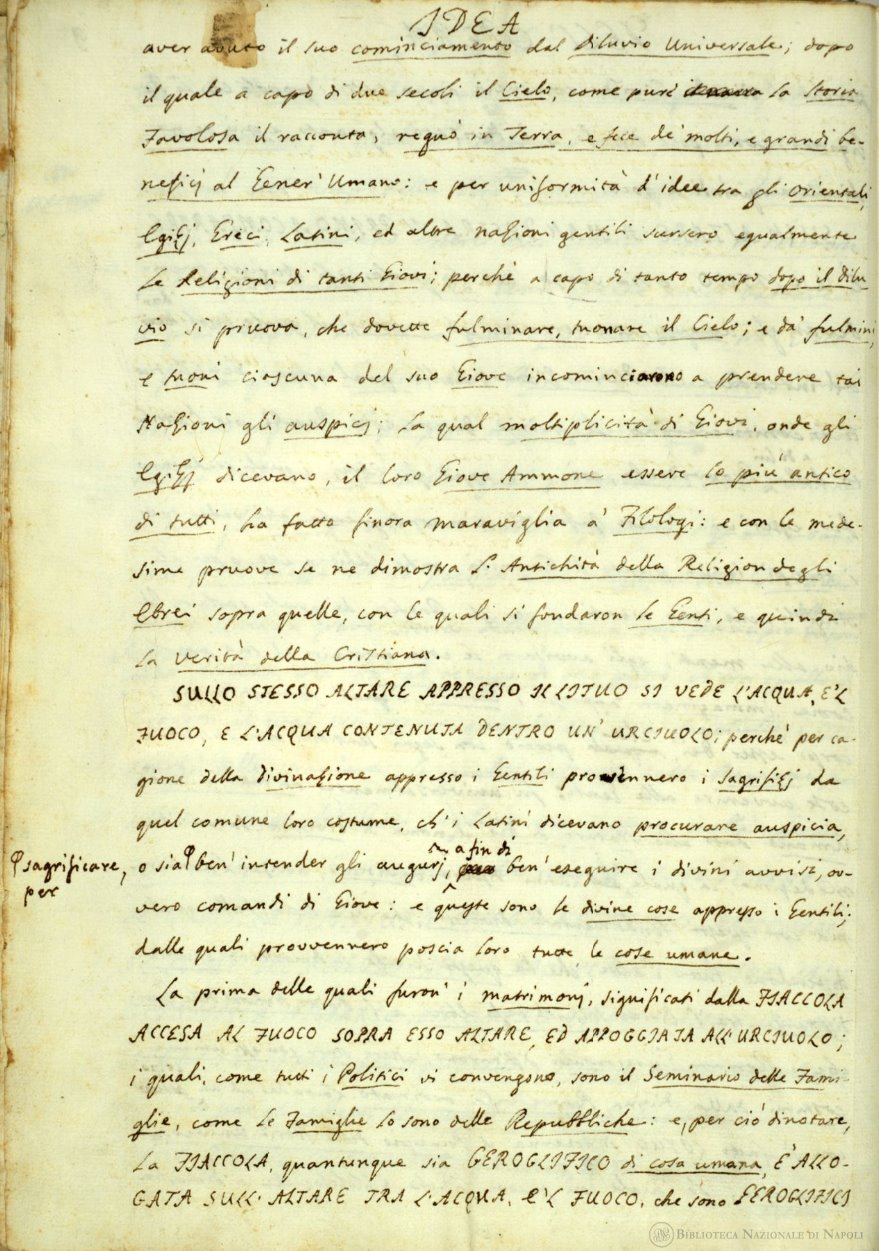 IDEA
aver avuto il suo cominciamento dal diluvio Universale; dopo
il quale a capo di due secoli il Cielo, come pure la Storia
Favolosa il racconta, regnò in Terra, e fece de' molti, e grandi be-
neficj al Gener' Umano: e per uniformità d'idee tra gli Orientali,
Egizj, Greci, Latini, ed altre nazioni gentili sursero egualmente
le Religioni di tanti Giovi; perchè a capo di tanto tempo dopo il dilu-
vio si pruova, che dovette fulminare, tuonare il Cielo; e da' fulmini,
e tuoni ciascuna del suo Giove incominciarono a prendere tai
Nazioni gli auspicj: la qual moltiplicità di Giovi, onde gli
Egizj dicevano, il loro Giove Ammone essere lo più antico
di tutti, ha fatto finora maraviglia a' Filologi: e con le mede-
sime pruove se ne dimostra l'Antichità della Religion degli
Ebrei sopra quelle, con le quali si fondaron le Genti, e quindi
la verità della Cristiana.
SULLO STESSO ALTARE APPRESSO IL LITUO SI VEDE L'ACQUA, E 'L
FUOCO, E L'ACQUA CONTENUTA DENTRO UN' URCIUOLO; perchè per ca-
gione della divinazione appresso i Gentili provvennero i sagrifizj da
quel comune loro costume, ch' i Latini dicevano procurare auspicia,
sagrificare,
per
o sia ben' intender gli augurj, a fin di ben' eseguire i divini avvisi, ov-
vero comandi di Giove: e queste sono le divine cose appresso i Gentili;
dalle quali provvennero poscia loro tutte le cose umane.
La prima delle quali furon' i matrimonj, significati dalla FIACCOLA
ACCESA AL FUOCO SOPRA ESSO ALTARE, ED APPOGGIATA ALL'URCIUOLO;
i quali, come tutti i Politici vi convengono, sono il Seminario delle Fami-
glie, come le Famiglie lo sono delle Repubbliche: e, per ciò dinotare,
la FIACCOLA, quantunque sia GEROGLIFICO di cosa umana, È ALLO-
GATA SULL' ALTARE TRA L'ACQUA, E 'L FUOCO, che sono GEROGLIFICI
BIBLIOTECA NAZIONALE DI NAPOLI